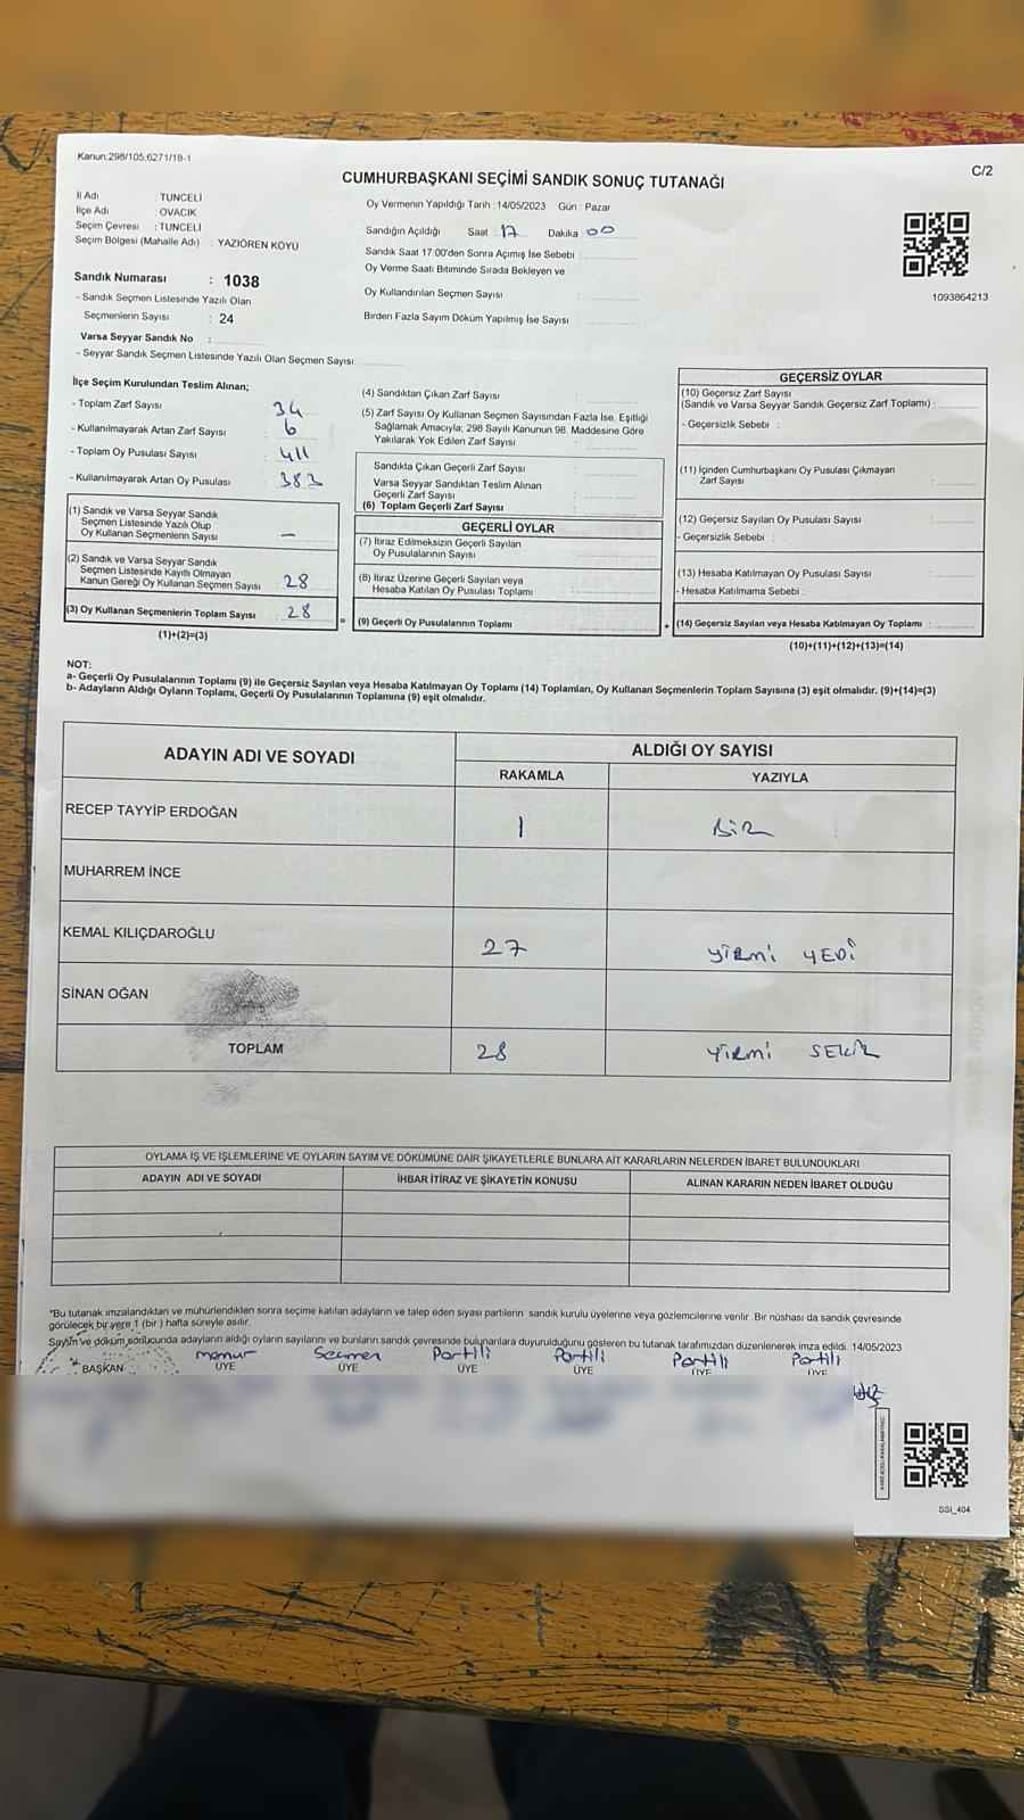 Kanun:298/105,6271/19-1
C/2
CUMHURBAŞKANI SEÇİMİ SANDIK SONUÇ TUTANAĞI
İl Adı : TUNCELİ
İlçe Adı : OVACIK
Seçim Çevresi : TUNCELİ
Seçim Bölgesi (Mahalle Adı) : YAZIÖREN KÖYÜ
Oy Vermenin Yapıldığı Tarih : 14/05/2023 Gün : Pazar
Sandığın Açıldığı Saat 17 Dakika 00
Sandık Saat 17:00'den Sonra Açımış İse Sebebi
Oy Verme Saati Bitiminde Sırada Bekleyen ve
Oy Kullandırılan Seçmen Sayısı :
Birden Fazla Sayım Döküm Yapılmış İse Sayısı
1093864213
Sandık Numarası : 1038
- Sandık Seçmen Listesinde Yazılı Olan
Seçmenlerin Sayısı : 24
Varsa Seyyar Sandık No :
- Seyyar Sandık Seçmen Listesinde Yazılı Olan Seçmen Sayısı
İlçe Seçim Kurulundan Teslim Alınan;
- Toplam Zarf Sayısı : 34
- Kullanılmayarak Artan Zarf Sayısı : 6
- Toplam Oy Pusulası Sayısı : 411
- Kullanılmayarak Artan Oy Pusulası : 383
(1) Sandık ve Varsa Seyyar Sandık
Seçmen Listesinde Yazılı Olup
Oy Kullanan Seçmenlerin Sayısı —
(2) Sandık ve Varsa Seyyar Sandık
Seçmen Listesinde Kayıtlı Olmayan
Kanun Gereği Oy Kullanan Seçmen Sayısı 28
(3) Oy Kullanan Seçmenlerin Toplam Sayısı 28
(1)+(2)=(3)
(4) Sandıktan Çıkan Zarf Sayısı
(5) Zarf Sayısı Oy Kullanan Seçmen Sayısından Fazla İse, Eşitliği
Sağlamak Amacıyla; 298 Sayılı Kanunun 98. Maddesine Göre
Yakılarak Yok Edilen Zarf Sayısı
Sandıkta Çıkan Geçerli Zarf Sayısı
Varsa Seyyar Sandıktan Teslim Alınan
Geçerli Zarf Sayısı
(6) Toplam Geçerli Zarf Sayısı
GEÇERLİ OYLAR
(7) İtiraz Edilmeksizin Geçerli Sayılan
Oy Pusulalarının Sayısı
(8) İtiraz Üzerine Geçerli Sayılan veya
Hesaba Katılan Oy Pusulası Toplamı
= (9) Geçerli Oy Pusulalarının Toplamı
GEÇERSİZ OYLAR
(10) Geçersiz Zarf Sayısı
(Sandık ve Varsa Seyyar Sandık Geçersiz Zarf Toplamı) :
- Geçersizlik Sebebi :
(11) İçinden Cumhurbaşkanı Oy Pusulası Çıkmayan
Zarf Sayısı
(12) Geçersiz Sayılan Oy Pusulası Sayısı
- Geçersizlik Sebebi :
(13) Hesaba Katılmayan Oy Pusulası Sayısı
- Hesaba Katılmama Sebebi :
+ (14) Geçersiz Sayılan veya Hesaba Katılmayan Oy Toplamı :
(10)+(11)+(12)+(13)=(14)
NOT:
a- Geçerli Oy Pusulalarının Toplamı (9) ile Geçersiz Sayılan veya Hesaba Katılmayan Oy Toplamı (14) Toplamları, Oy Kullanan Seçmenlerin Toplam Sayısına (3) eşit olmalıdır. (9)+(14)=(3)
b- Adayların Aldığı Oyların Toplamı, Geçerli Oy Pusulalarının Toplamına (9) eşit olmalıdır.
ADAYIN ADI VE SOYADI
ALDIĞI OY SAYISI
RAKAMLA YAZIYLA
RECEP TAYYİP ERDOĞAN 1 BİR
MUHARREM İNCE
KEMAL KILIÇDAROĞLU 27 YİRMİ YEDİ
SİNAN OĞAN
TOPLAM 28 YİRMİ SEKİZ
OYLAMA İŞ VE İŞLEMLERİNE VE OYLARIN SAYIM VE DÖKÜMÜNE DAİR ŞİKAYETLERLE BUNLARA AİT KARARLARIN NELERDEN İBARET BULUNDUKLARI
ADAYIN ADI VE SOYADI İHBAR İTİRAZ VE ŞİKAYETİN KONUSU ALINAN KARARIN NEDEN İBARET OLDUĞU
*Bu tutanak imzalandıktan ve mühürlendikten sonra seçime katılan adayların ve talep eden siyasi partilerin sandık kurulu üyelerine veya gözlemcilerine verilir. Bir nüshası da sandık çevresinde
görülecek bir yere 1 (bir) hafta süreyle asılır.
Sayım ve döküm sonucunda adayların aldığı oyların sayılarını ve bunların sandık çevresinde bulunanlara duyurulduğunu gösteren bu tutanak tarafımızdan düzenlenerek imza edildi. 14/05/2023
memur Seçmen Partili Partili Partili Partili
BAŞKAN ÜYE ÜYE ÜYE ÜYE ÜYE ÜYE
SSİ_404
ALİ